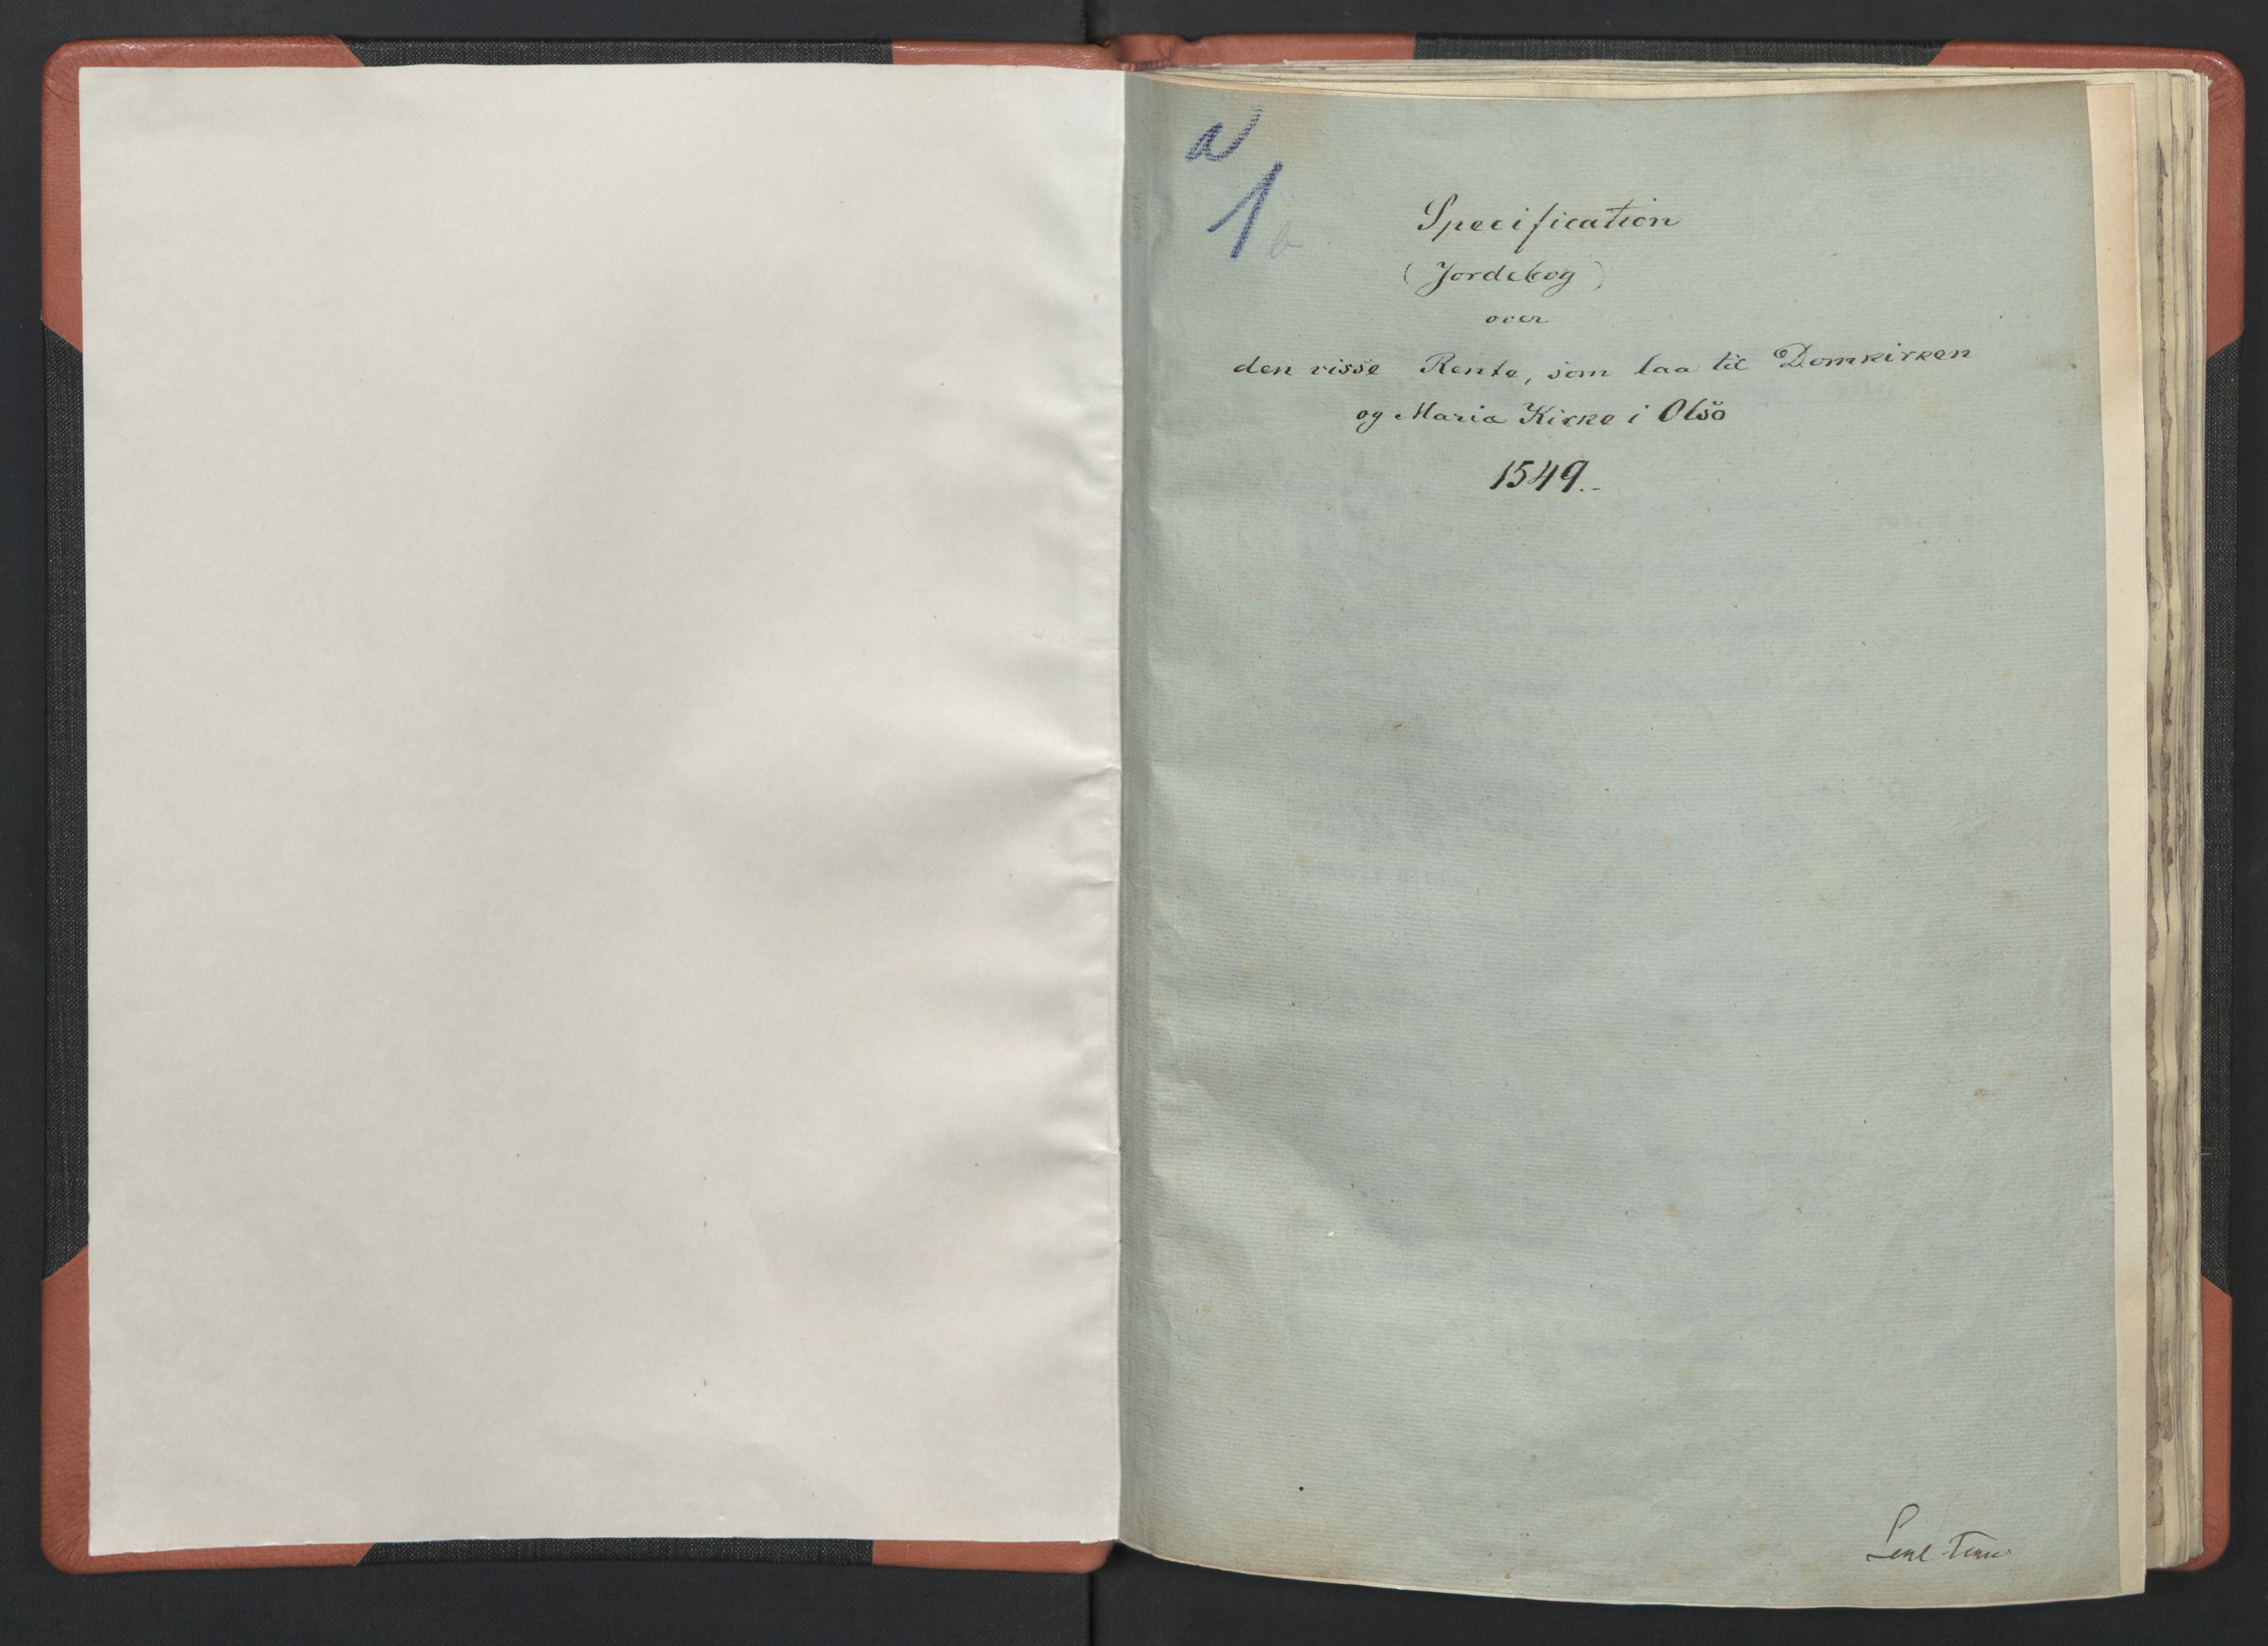 a
1
b
Specification
(Jordebog)
over
den visse Rente, som laa til Domkirken
og Maria Kirke i Olso
1549.-